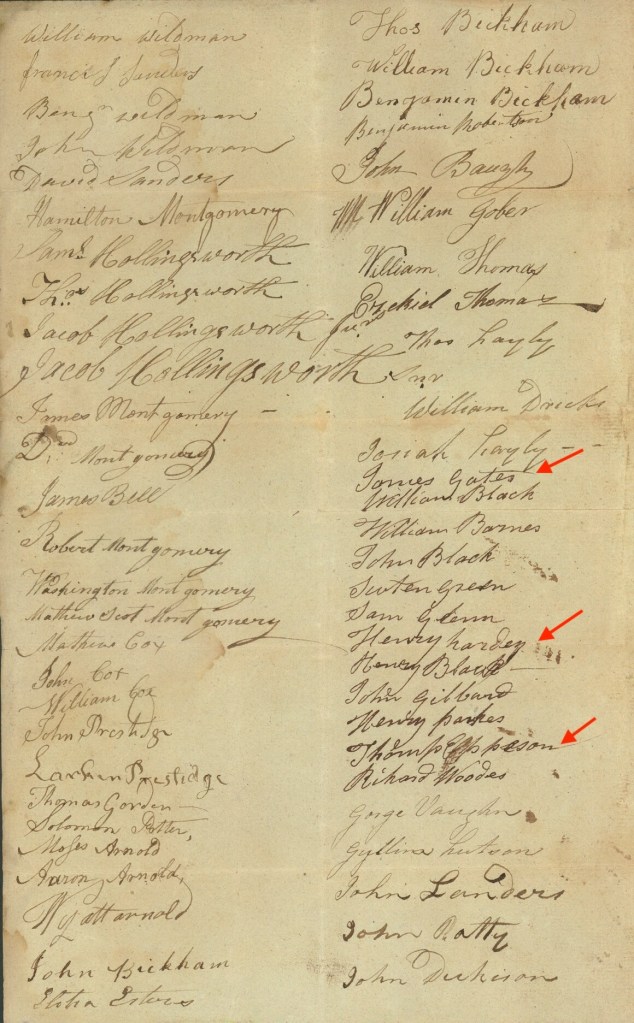 William Wildman
Francis J Sanders
Benjn Wildman
John Wildman
David Sanders
Hamilton Montgomery
Saml Hollingsworth
Thos Hollingsworth
Jacob Hollingsworth Junr
Jacob Hollingsworth Snr
James Montgomery
Montgomery
James Bell
Robert Montgomery
Washington Montgomery
Mathew Scot Montgomery
Mathew Cox
John Cox
William Cox
John Prestidge
Larken Prestidge
Thomas Gorden
Solomon Potter,
Moses Arnold
Aaron Arnold,
Wyatt arnold
John Bickham
Elisha Esters
Thos Bickham
William Bickham
Benjamin Bickham
Benjamin Robertson
John Baugh
William Gober
William Thomas
Ezekiel Thomas
Thos Layly
William Dricks
Josiah Layly
James Gates
William Black
William Barnes
John Black
Green
Sam Glenn
Henry hardey
Henry Black
John Gibbard
Henry parkes
Thomps Epperson
Rihard Woodes
Gorge Vaughn
Hutson
John Landers
John Ratty
John Dickison